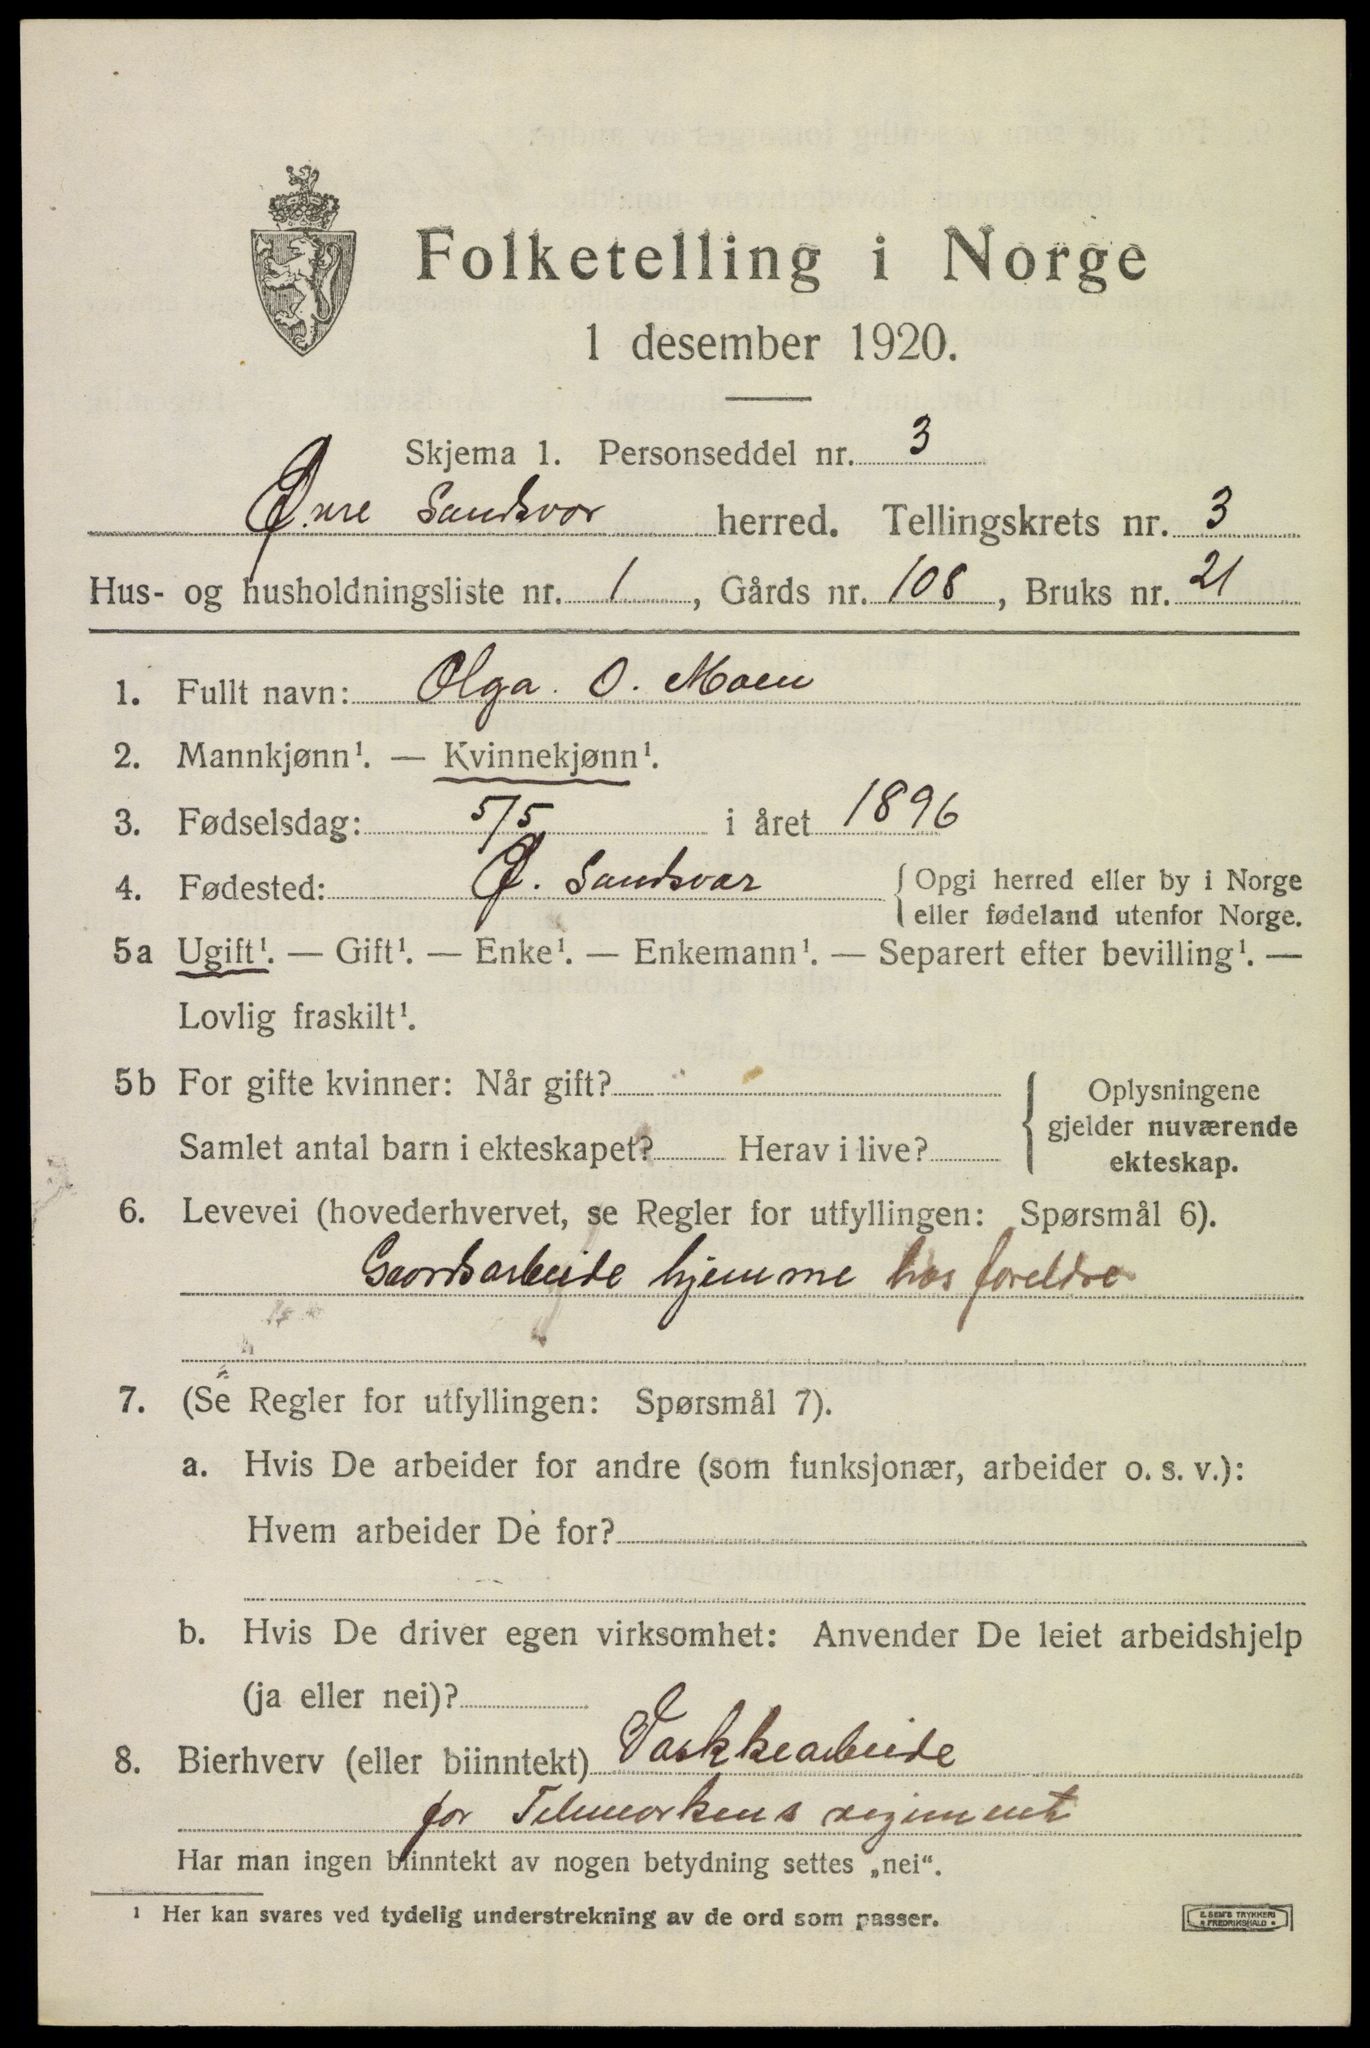 Folketelling i Norge
1 desember 1920.
Skjema 1. Personseddel nr. 3
Øvre Sandsvær herred. Tellingskrets nr. 3
Hus- og husholdningsliste nr. 1, Gårds nr. 108, Bruks nr. 21
1. Fullt navn: Olga. O. Moen
2. Mannkjønn¹. — Kvinnekjønn¹.
3. Fødselsdag: 5/5 i året 1896
4. Fødested: Ø. Sandsvær { Opgi herred eller by i Norge
eller fødeland utenfor Norge.
5a Ugift¹. — Gift¹. — Enke¹. — Enkemann¹. — Separert efter bevilling¹. —
Lovlig fraskilt¹.
5b For gifte kvinner: Når gift?
Samlet antal barn i ekteskapet? Herav i live?
Oplysningene
gjelder nuværende
ekteskap.
6. Levevei (hovederhvervet, se Regler for utfyllingen: Spørsmål 6).
Gaardsarbeide hjemme hos foreldre
7. (Se Regler for utfyllingen: Spørsmål 7).
a. Hvis De arbeider for andre (som funksjonær, arbeider o. s. v.):
Hvem arbeider De for?
b. Hvis De driver egen virksomhet: Anvender De leiet arbeidshjelp
(ja eller nei)?
8. Bierhverv (eller biinntekt) Vaskkearbeide
for Telemarkens regiment
Har man ingen biinntekt av nogen betydning settes „nei“.
¹ Her kan svares ved tydelig understrekning av de ord som passer.
E. SEM'S TRYKKERI
FREDRIKSHALD